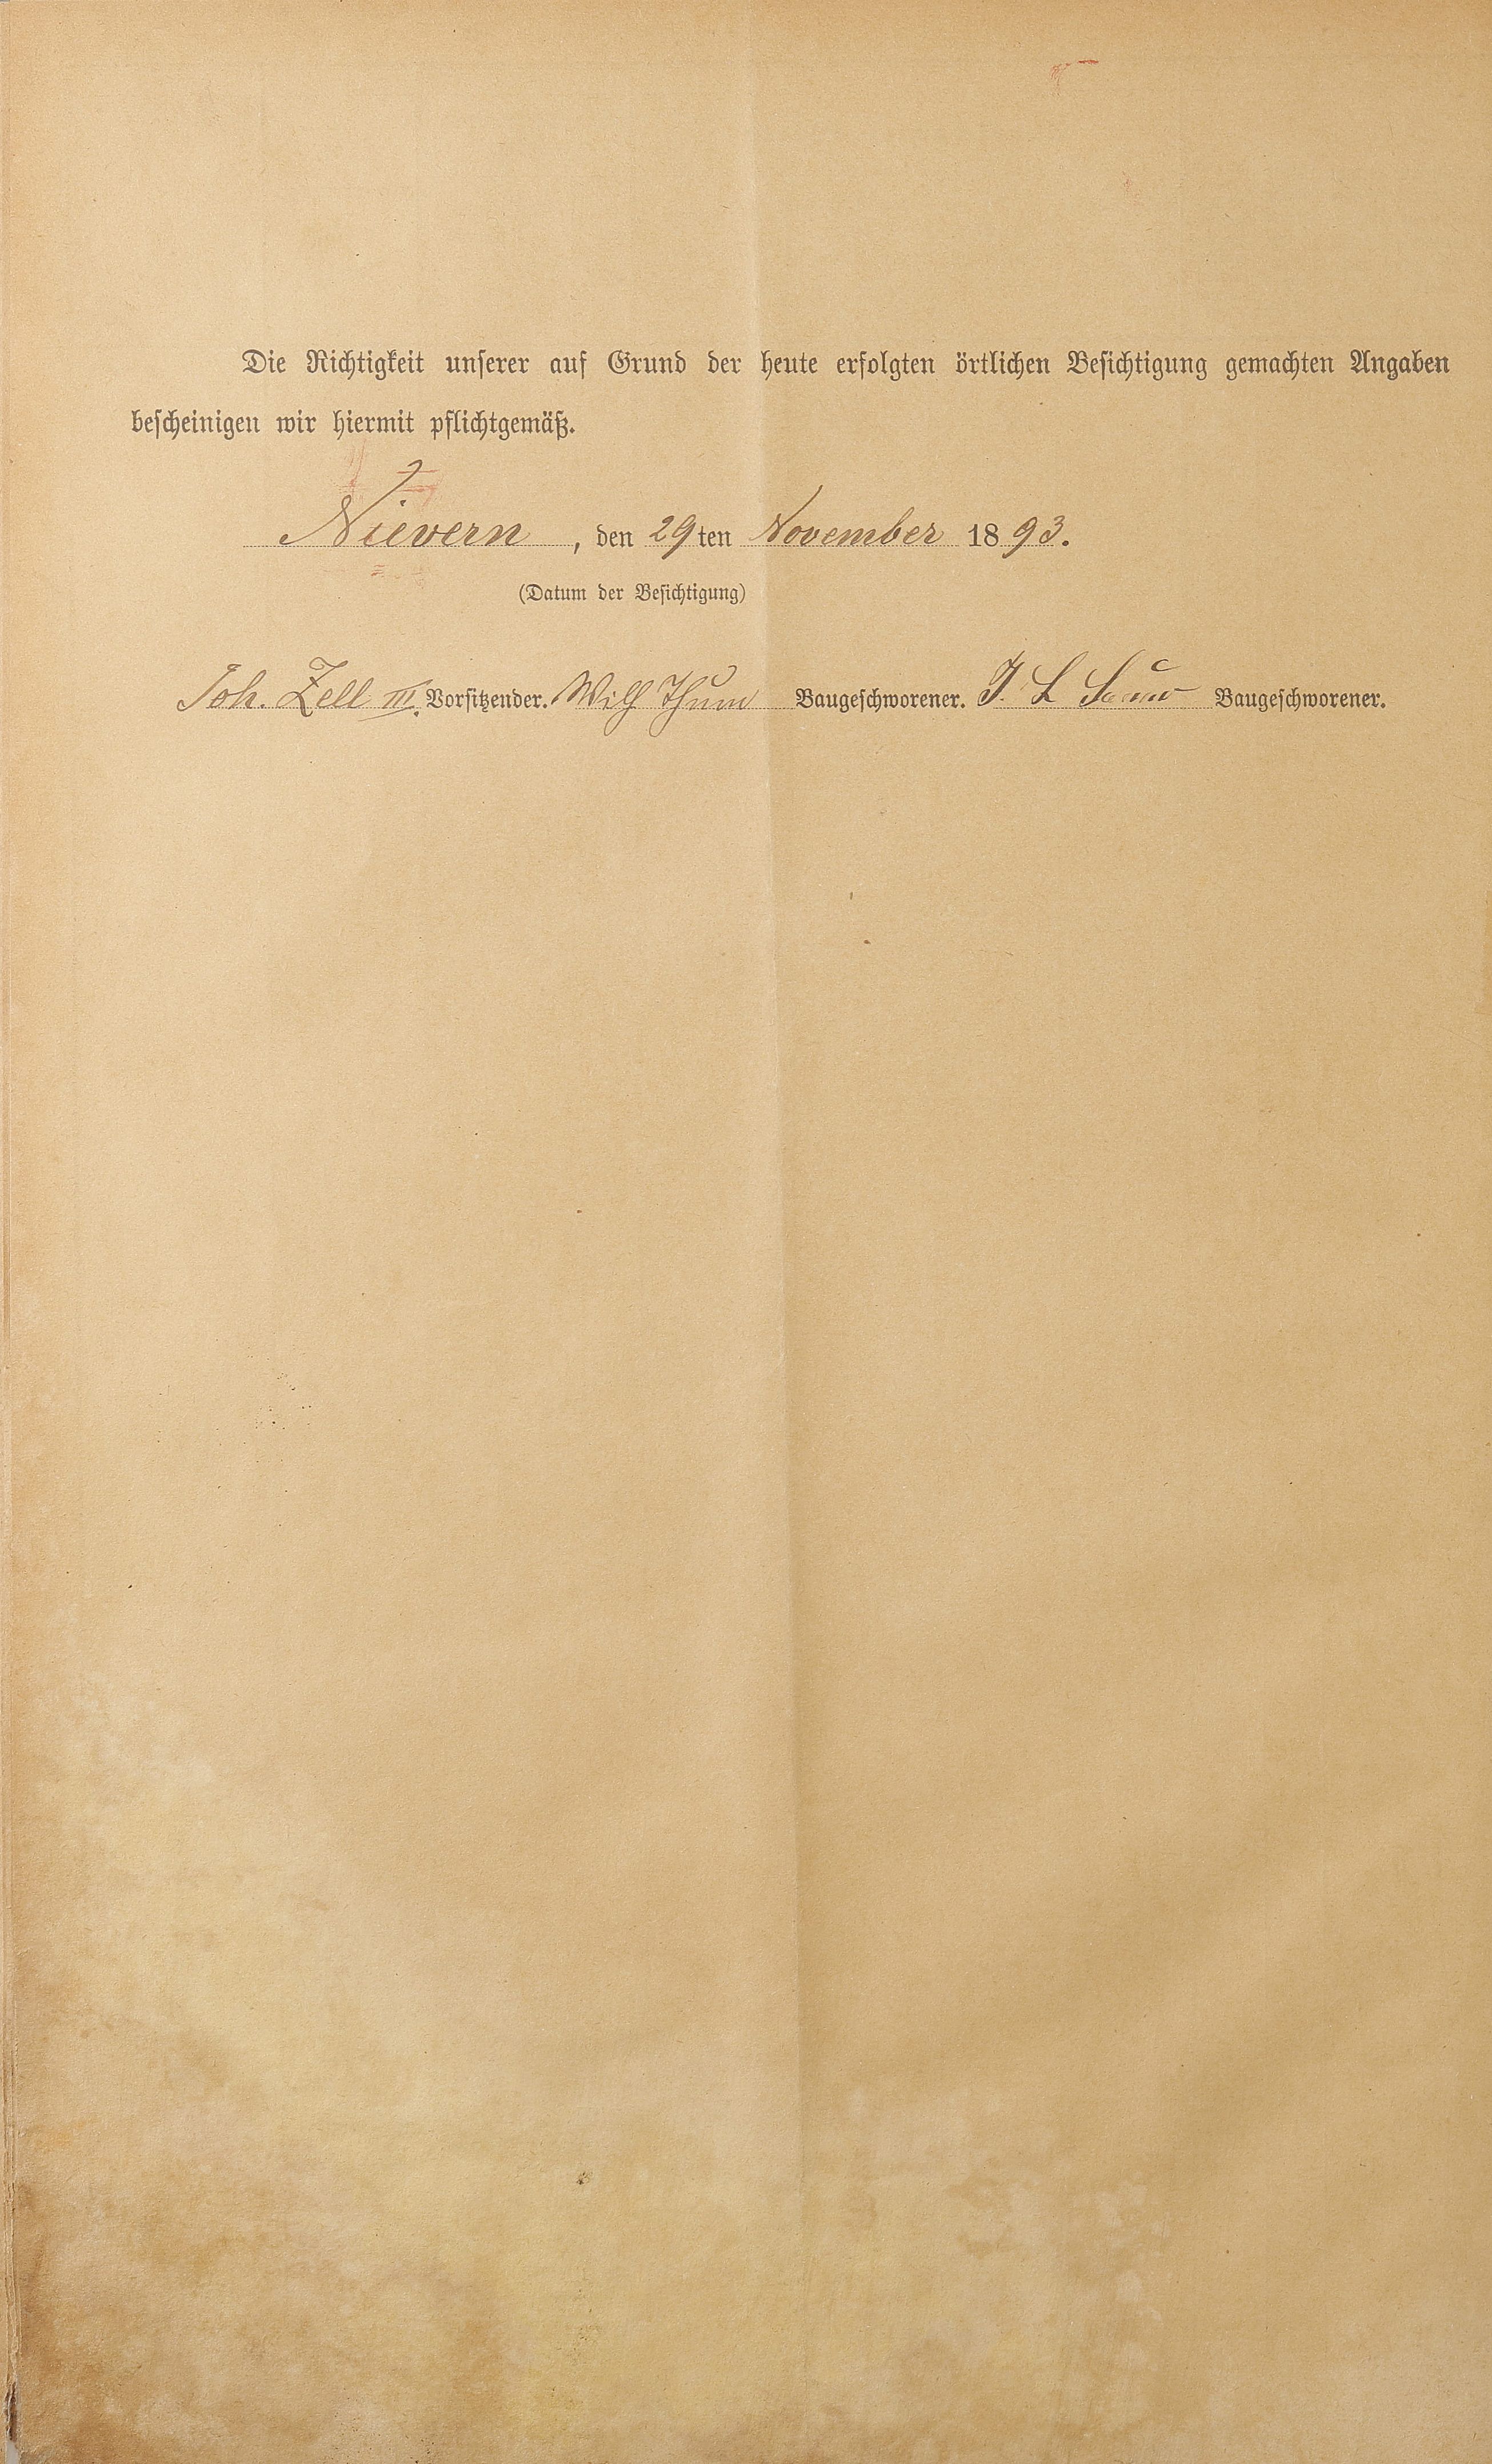 Die Richtigkeit unserer auf Grund der heute erfolgten örtlichen Besichtigung gemachten Angaben
bescheinigen wir hiermit pflichtgemäß.
Nievern, den 29ten November 1893.
(Datum der Besichtigung)
Joh. Zell III. Vorsitzender. Wilh Thum Baugeschworener. J. L Baugeschworener.